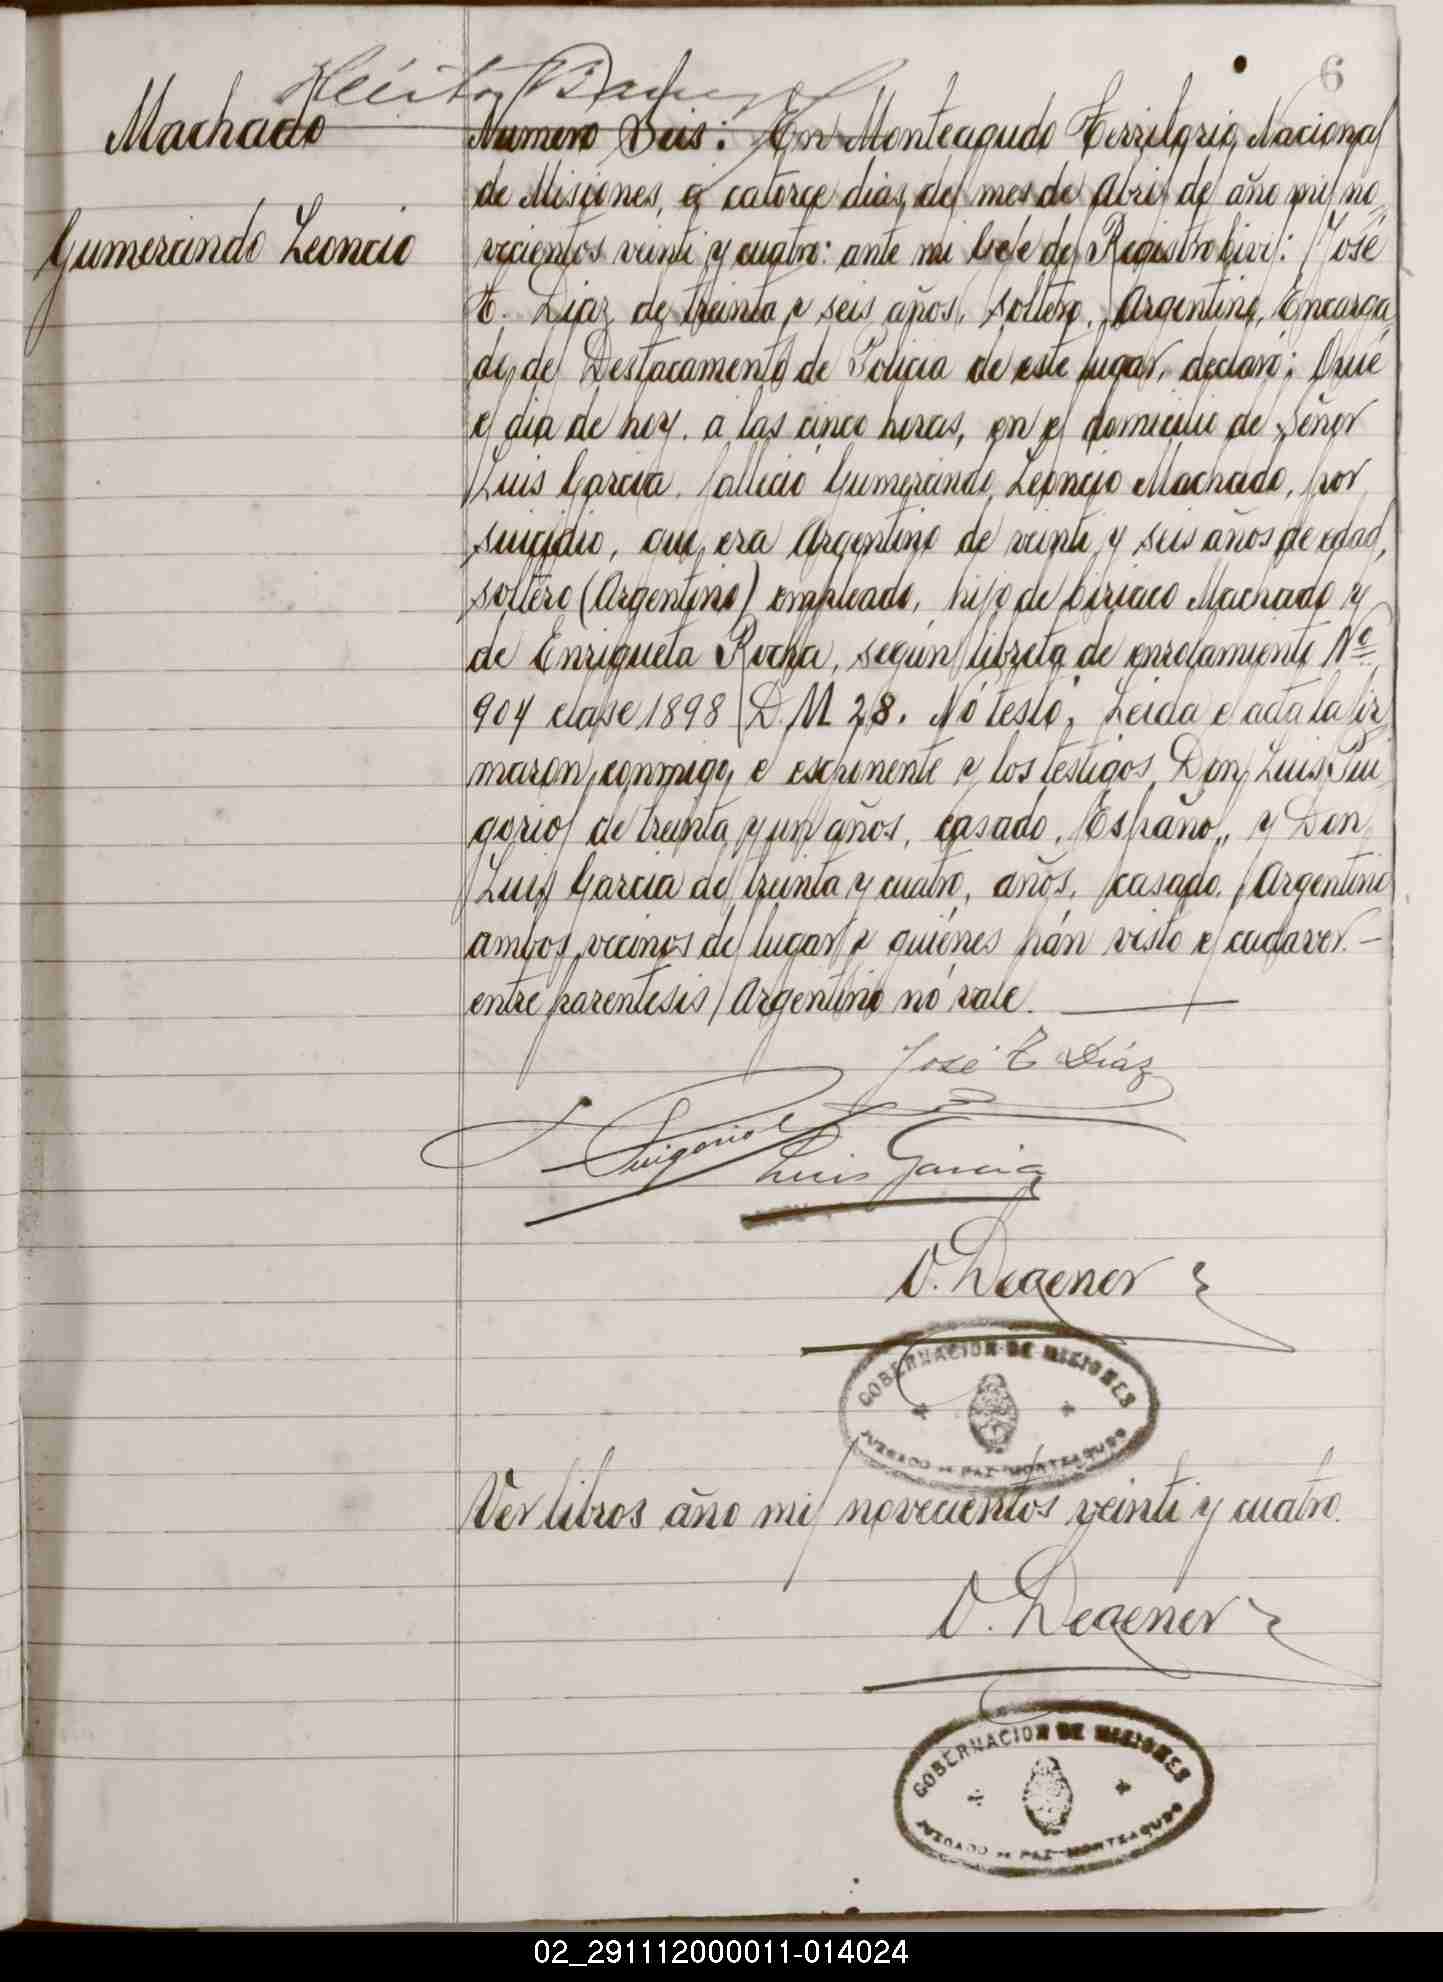 6
Machado
Gumercindo Leoncio
Numero Seis: En Monteagudo Territorio Nacional
de Misiones, a catorce dias del mes de Abril del año mil no
vecientos veinti y cuatro: ante mi Gefe del Registro Civil: José
E. Diaz de treinta y seis años, soltero, Argentino, Encarga
do del Destacamento de Policia de este lugar, declaró: Qué
el dia de hoy, a las cinco horas, en el domicilio del Señor
Luis Garcia, falleció Gumercindo Leoncio Machado, por
suicidio, que era Argentino de veinti y seis años de edad,
soltero (Argentino) empleado, hijo de Ciriaco Machado y
de Enriqueta Rocha, según libreta de enrolamiento Nº
904 clase 1898 D. M 28. Nó testó, Leida el acta la fir
maron conmigo el esponente y los testigos, Don Luis Pui
goriol de treinta y un años, casado, Español, y Don
Luis Garcia de treinta y cuatro, años, casado, Argentino
ambos vecinos del lugar y quiénes hán visto el cadaver. —
entre parentesis Argentino nó vale.
José E Diáz
Puigoriol
Luis Garcia
O. Degener
GOBERNACION DE MISIONES
JUZGADO DE PAZ-MONTEAGUDO
Ver libros año mil novecientos veinti y cuatro.
O. Degener
GOBERNACION DE MISIONES
JUZGADO DE PAZ-MONTEAGUDO
02_291112000011-014024